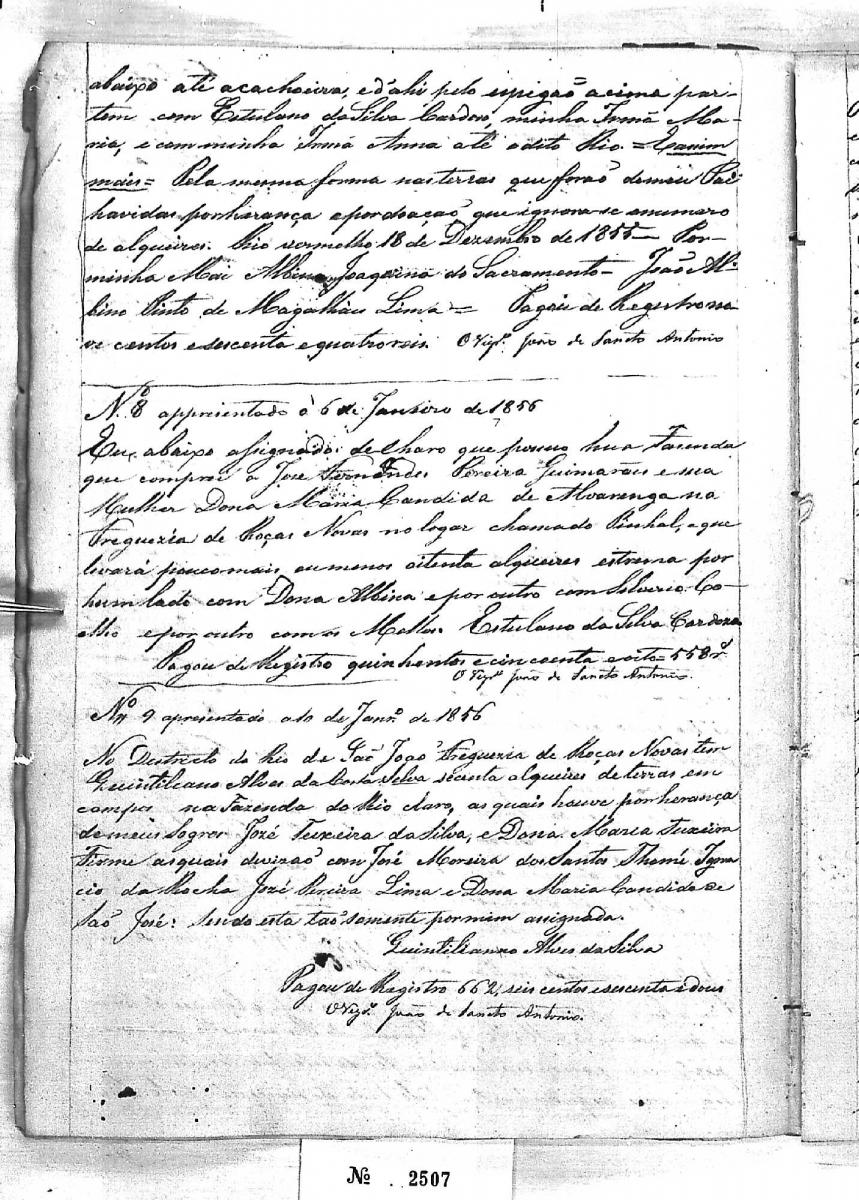 abaixo até acachoeira, edahi pelo espigaõ acima par-
tem com Estulano da Silva Cardoso, minha Irmã Ma-
ria, e com minha Irmã Anna até odito Rio =
mais = Pela mesma forma nas terras que foraõ de meu Pai
havidas por herança e por doaçaõ que ignora-se onumero
de alqueires. Rio vermelho 18 de Dezembro de 1855 - Por
minha Mãi Albina Joaquina do Sacramento - Joaõ Al-
bino Pinto de Magalhães Lima = Pagou de Registro no-
ve centos e sescenta e quatro reis O Vigrº. João de Sancto Antonio
Nº. 8 appresentado á 6 de Janeiro de 1856
Eu abaixo assignado declharo que possuo hua Fasenda
que comprei á José Fernandes Pereira Guimarães e sua
Mulher Dona Maria Candida de Alvarenga na
Freguezia de Roças Novas no logar chamado Pinhal, e que
levará pouco mais, ou menos oitenta alqueires estrema por
hum lado com Dona Albina e por outro com Silverio Co-
elho e por outro com os Mattos. Estulano da Silva Cardozo
Pagou de Registro quinhentos e cincoenta e oito = 558 rs
O Vigrº. João de Sancto Antonio.
Nº 9 apresentado a 10 de Jannº. de 1856
No Destrecto do Rio de Saõ Joaõ Freguezia de Roças Novas tem
Quintiliano Alves da Costa Silva secenta alqueires de terras em
campos na Fazenda do Rio claro, as quais houve por herança
de meus Sogros José Teixeira da Silva, e Dona Maria Teixeira
Firme as quais divizaõ com José Moreira dos Santos Thomé Igna
cio da Rocha José Pereira Lima e Dona Maria Candida de
Saõ José: sendo esta taõ somente por mim assignada.
Quintilianno Alves da Silva
Pagou de Registro 662, seis centos e sescenta e dous
O Vigrº. João de Sancto Antonio.
Nº . 2507